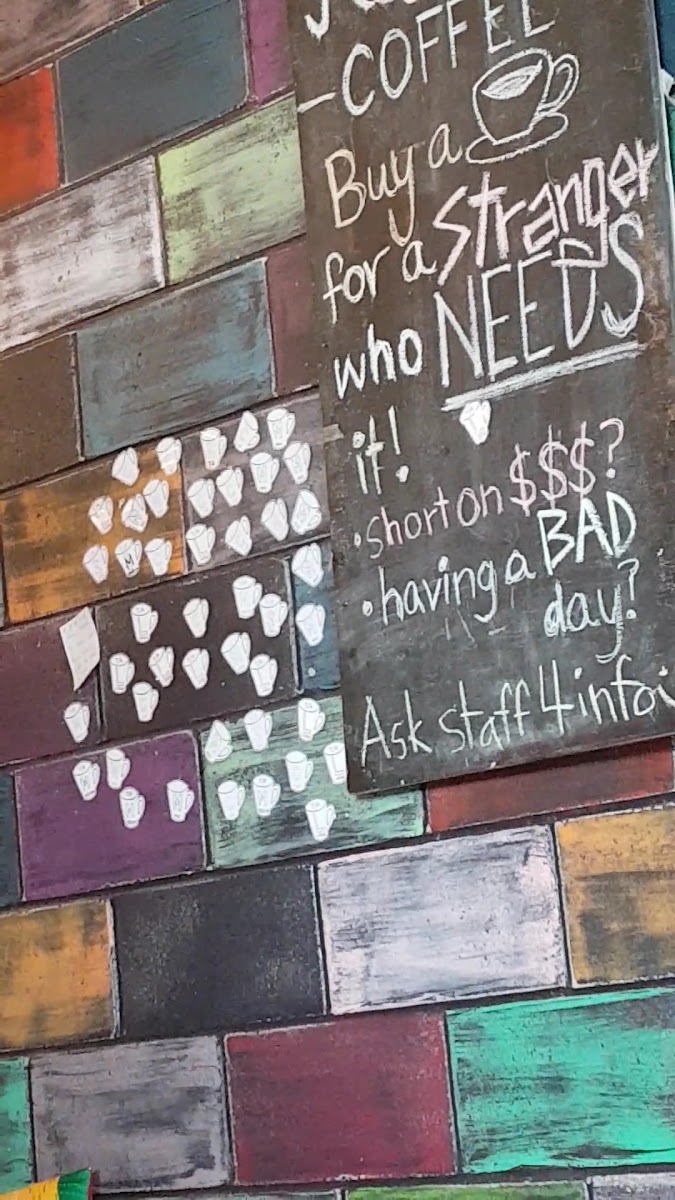 -COFFEE
Buy a
for a Stranger
who NEEDS
it!
•short on $$$?
•having a BAD
day?
Ask staff 4 info.